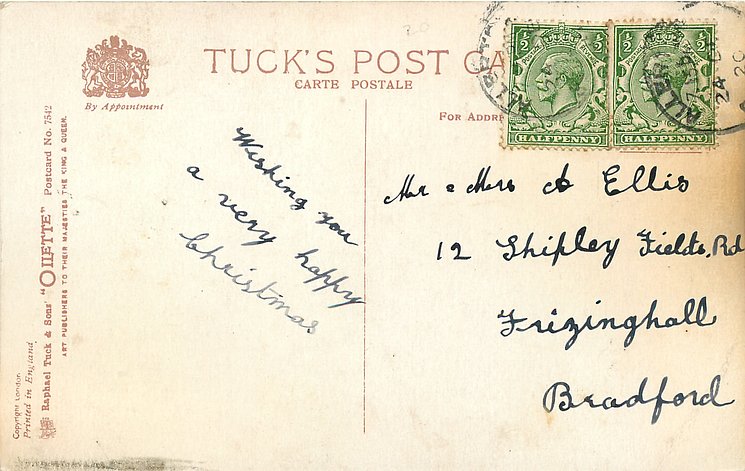 TUCK'S POST CA
CARTE POSTALE
By Appointment
FOR ADDR
1/2 1/2
HALFPENNY
1/2 1/2
HALFPENNY
24
20
Wishing you
a very happy
Christmas
Mr & Mrs A Ellis
12 Shipley Fields, Rd
Frizinghall
Bradford
Raphael Tuck & Sons' "OILETTE" Postcard No. 7542
ART PUBLISHERS TO THEIR MAJESTIES THE KING & QUEEN.
Copyright London
Printed in England